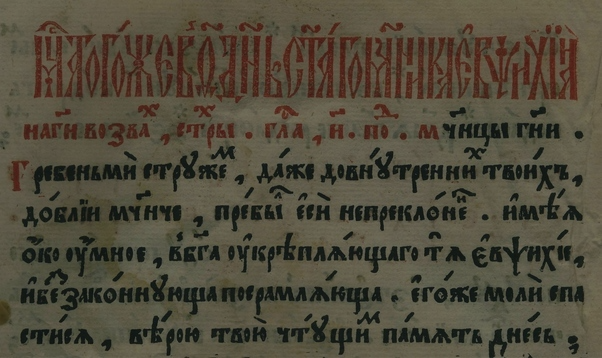 мц҃а тогоже в҃ ѻⷣ дн҃ь ст҃аго мч҃нка еѵѱихїѧ
на гн҃и возваⷯ, стрⷯы. гла҃, и҃. поⷣ. мч҃нцы гн҃и.
Гребеньмѝ стружеⷨ, да́же довнꙋ́треннииⷯ твои́хъ,
до́блїи мч҃нче, пребы̀ е҆сѝ непрекло́неⷩ. и҆мѣ́ѧ
ѻ҆́ко ᲂу҆́мное, в҆бг҃а ᲂу҆крѣплѧ́ющаго тѧ҃ є҆вѱи́хїе,
и҆беззако́ннꙋющаѧ посрамлѧ́юща. є҆го́же молѝ спа
стисѧ, вѣ́рою твою̀ чтꙋ́щиⷨ па́мѧть дне́сь;